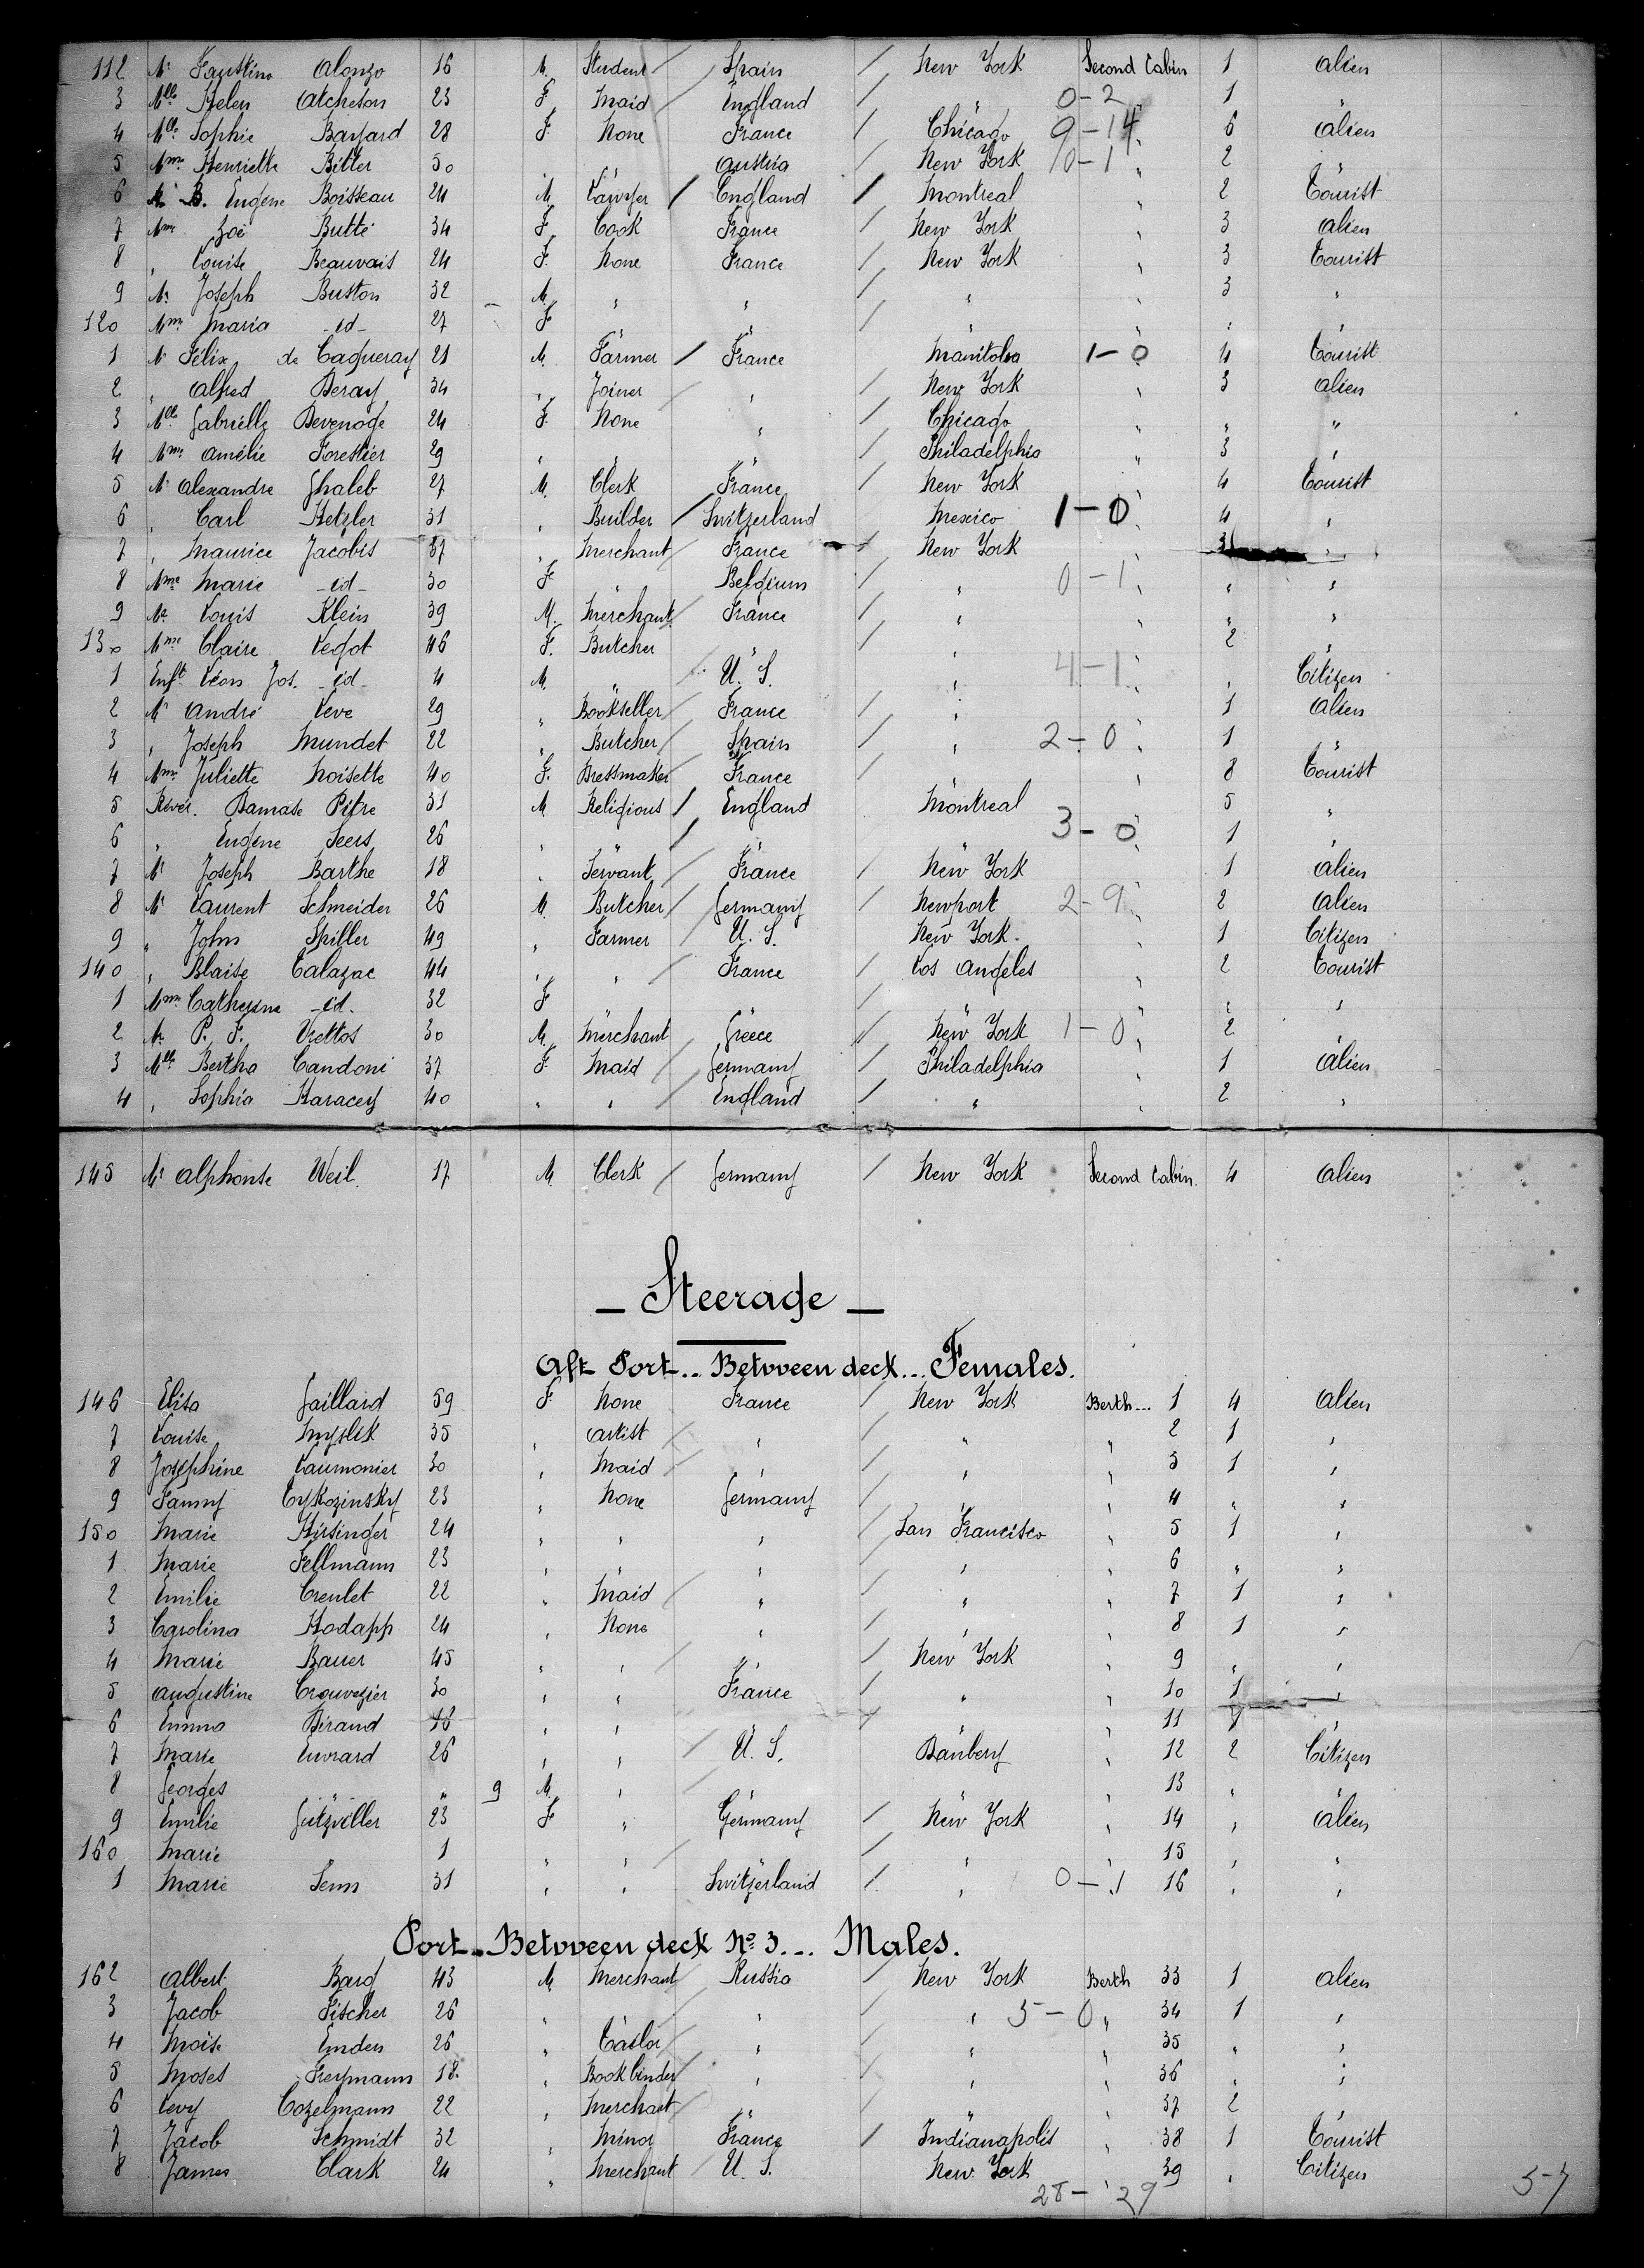 112 Mr Faustino Alonzo 16 M. Student / Spain / New York Second Cabin 1 Alien
3 Mlle Helen Atcheson 23 F Maid / England / " 0-2 " 1
4 Mlle Sophie Bayard 28 F. None France / Chicago 9-14 " 6 Alien
5 Mme Henriette Bitter 50 " " Austria / New York 0-1 " 2 "
6 Mr B. Eugène Boisseau 24 M. Lawyer / England / Montreal " 2 Tourist
7 Mme Zoé Butté 34 F. Cook France / New York " 3 Alien
8 " Louise Beauvais 24 F. None France / New York " 3 Tourist
9 Mr Joseph Buston 32 M. " " / " " 3 "
120 Mme Maria -id- 27 F " " / " " " "
1 Mr Félix de Cagueray 21 M. Farmer / France Manitoba 1-0 4 Tourist
2 " Alfred Deray 34 " Joiner " / New York " 3 Alien
3 Mlle Gabrielle Devenoge 24 F. None " / Chicago " " "
4 Mme Amélie Forestier 29 " " " / Philadelphia " 3 "
5 Mr Alexandre Ghaleb 27 M. Clerk France / New York " 4 Tourist
6 " Carl Hetzler 31 " Builder / Switzerland Mexico 1-0 " 4 "
7 " Maurice Jacobis 37 " Merchant / France / New York " 3 "
8 Mme Marie -id- 30 F " Belgium / " 0-1 " " "
9 Mr Louis Klein 39 M. Merchant / France / " " " "
130 Mme Claire Legot 46 F. Butcher " / " " 2 "
1 Enft Léon Jos. -id- 4 M. " / U. S. " 4-1 " " Citizen
2 Mr André Leve 29 " Bookseller / France / " " 1 Alien
3 " Joseph Mundet 22 " Butcher / Spain / " 2-0 " 1 "
4 Mme Juliette Noisette 40 F. Dressmaker France / " " 8 Tourist
5 Rever. Damase Pitre 31 M Religious / England Montreal " 5 "
6 " Eugène Seers 26 " " / " " 3-0 " 1 "
7 Mr Joseph Barthe 18 " Servant / France / New York " 1 Alien
8 Mr Laurent Schneider 26 M. Butcher / Germany / Newport 2-9 " 2 Alien
9 " John Spiller 49 " Farmer / U. S. New York. " 1 Citizen
140 " Blaise Talazac 44 " " / France / Los Angeles " 2 Tourist
1 Mme Catherine -id. 32 F " " / " " " "
2 Mr P. F. Vrettos 30 M. Merchant Greece / New York 1-0 " 2 "
3 Mlle Bertha Candoni 37 F. Maid / Germany / Philadelphia " 1 Alien
4 " Sophia Haracey 40 " " / England / " " 2 "
145 Mr Alphonse Weil. 17 M. Clerk / Germany / New York Second Cabin. 4 Alien
- Steerage -
Aft Port... Betwween deck... Females.
146 Elisa Gaillard 59 F. None France / New York Berth... 1 4 Alien
7 Louise Myslik 35 " Artist / " / " " 2 1 "
8 Joséphine Laumonier 30 " Maid / " / " " 3 1 "
9 Fanny Cykozinsky 23 " None Germany / " " 4 " "
150 Marie Hirsinger 24 " " " / San Francisco " 5 1 "
1 Marie Fellmann 23 " " " / " " 6 " "
2 Emilie Creulet 22 " Maid / " / " " 7 1 "
3 Carolina Hodapp 24 " None " / " " 8 1 "
4 Marie Bauer 45 " " " / New York " 9 " "
5 Augustine Crouvezier 30 " " France / " " 10 1 "
6 Emma Biraud 16 " " " / " " 11 1 "
7 Marie Euvrard 26 " " / U. S. Banbery " 12 2 Citizen
8 Georges " " 9 M. " / " " " 13 " "
9 Emilie Gutzviller 23 F " Germany / New York " 14 " Alien
160 Marie " 1 " " / " / " " 15 " "
1 Marie Senn 31 " " Switzerland / " 0-1 16 " "
Port... Betwween deck No 3... Males.
162 Albert Bard 43 M Merchant / Russia / New York Berth 33 1 Alien
3 Jacob Fischer 26 " " / " / " 5-0 " 34 1 "
4 Moïse Enden 26 " Tailor / " / " " 35 " "
5 Moses Freymann 18 " Bookbinder / " / " " 36 " "
6 Levy Cozelmann 22 " Merchant / " / " " 37 2 "
7 Jacob Schmidt 32 " Minor France / Indianapolis " 38 1 Tourist
8 James Clark 24 " Merchant / U. S. New York " 39 " Citizen
28-29 5-7